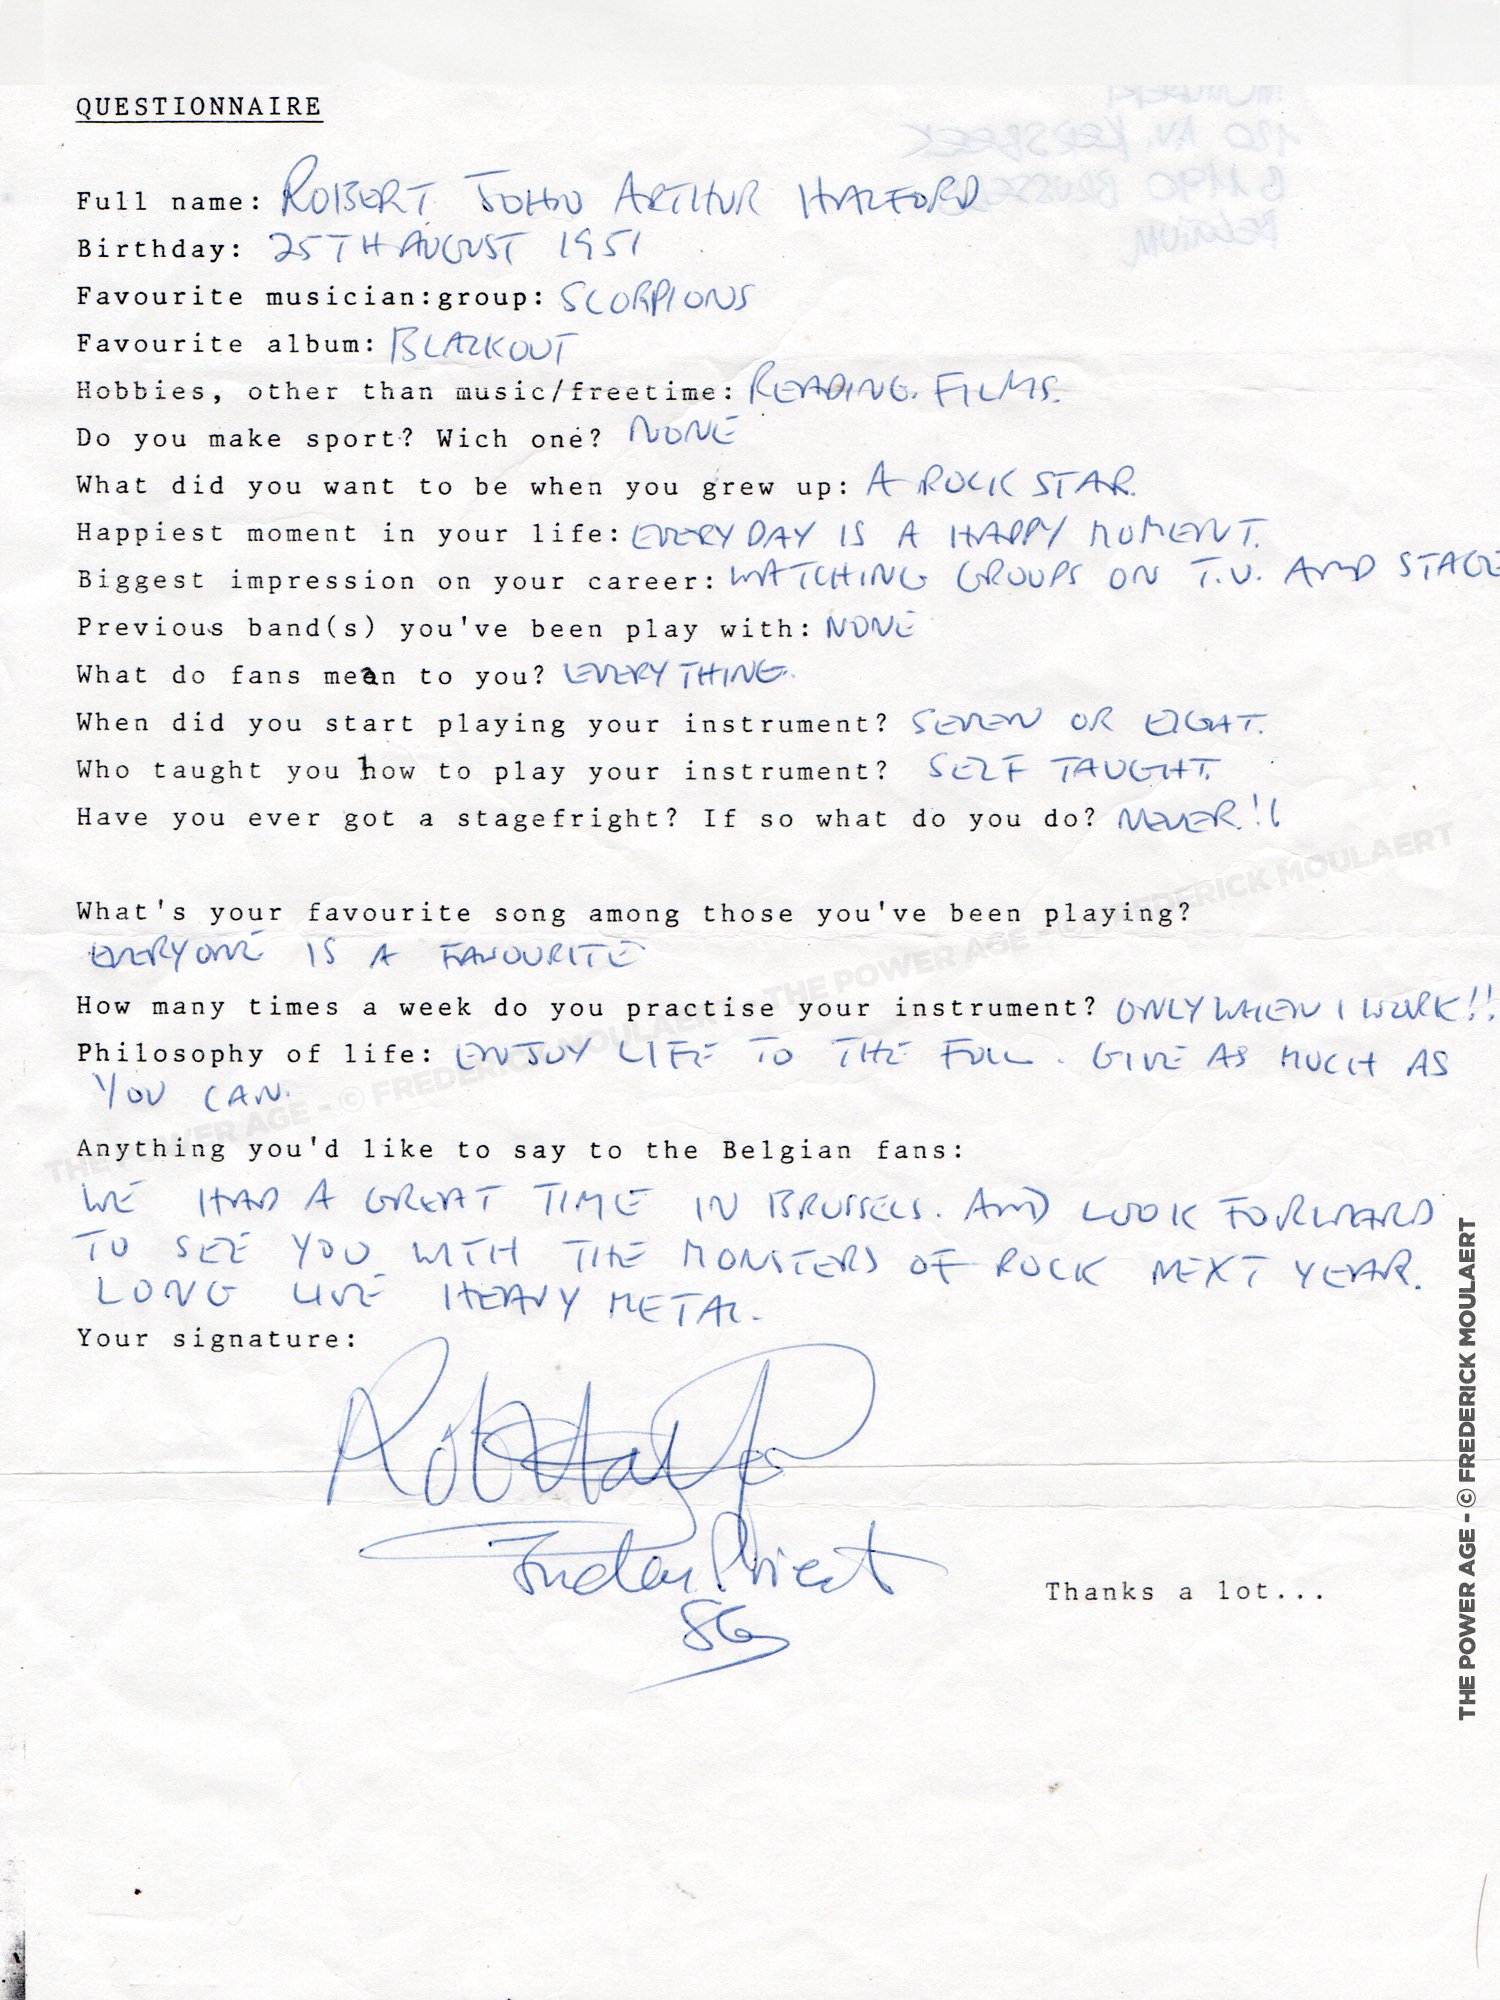 QUESTIONNAIRE
Full name: ROBERT JOHN ARTHUR HALFORD
Birthday: 25TH AUGUST 1951
Favourite musician:group: SCORPIONS
Favourite album: BLACKOUT
Hobbies, other than music/freetime: READING. FILMS.
Do you make sport? Wich one? NONE
What did you want to be when you grew up: A ROCK STAR.
Happiest moment in your life: EVERYDAY IS A HAPPY MOMENT.
Biggest impression on your career: WATCHING GROUPS ON T.V. AND STAGE
Previous band(s) you've been play with: NONE
What do fans mean to you? EVERYTHING.
When did you start playing your instrument? SEVEN OR EIGHT.
Who taught you how to play your instrument? SELF TAUGHT.
Have you ever got a stagefright? If so what do you do? NEVER!!
What's your favourite song among those you've been playing?
EVERYONE IS A FAVOURITE
How many times a week do you practise your instrument? ONLY WHEN I WORK!!
Philosophy of life: ENJOY LIFE TO THE FULL. GIVE AS MUCH AS
YOU CAN.
Anything you'd like to say to the Belgian fans:
WE HAD A GREAT TIME IN BRUSSELS. AND LOOK FORWARD
TO SEE YOU WITH THE MONSTERS OF ROCK NEXT YEAR.
LONG LIVE HEAVY METAL.
Your signature:
Rob Halford
Judas Priest
86
Thanks a lot...
THE POWER AGE - © FREDERICK MOULAERT - THE POWER AGE - © FREDERICK MOULAERT
THE POWER AGE - © FREDERICK MOULAERT